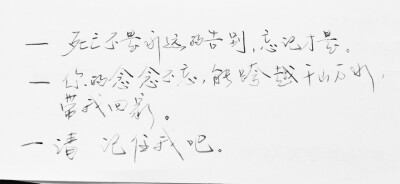 一 死亡不是永远的告别,忘记才是。
一 你的念念不忘,能跨越千山万水,
带我回家。
一 请 记住我吧。